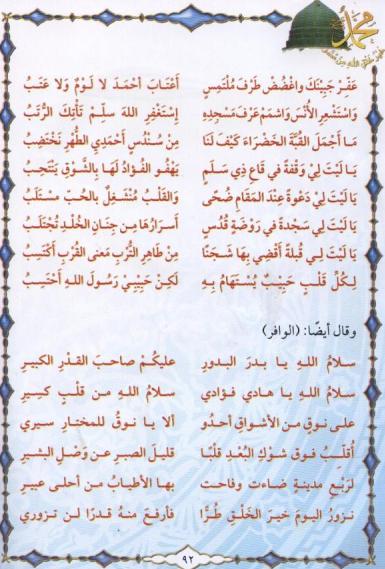 محمد
عَفِّرْ جَبِيْنَكَ وَاغْضُضْ طَرْفَ مُلْتَمِسٍ أَعْتَابَ أَحْمَدَ لَا لَوْمٌ وَلَا عَتَبُ
وَاسْتَشْعِرِ الْأُنْسَ وَاشْمَمْ عَرْفَ مَسْجِدِهِ إِسْتَغْفِرِ اللهَ سَلِّمْ تَأْتِكَ الرُّتَبُ
مَا أَجْمَلَ الْقُبَّةَ الْخَضْرَاءَ كَيْفَ لَنَا مِنْ سُنْدُسٍ أَحْمَدِي الطُّهْرِ نَخْتَضِبُ
يَا لَيْتَ لِيْ وَقْفَةً فِي قَاعِ ذِي سَلَمٍ يَهْفُو الْفُؤَادُ لَهَا بِالشَّوْقِ يَنْتَحِبُ
يَا لَيْتَ لِيْ دَعْوَةً عِنْدَ الْمَقَامِ ضُحًى وَالْقَلْبُ مُنْشَغِلٌ بِالْحُبِّ مُسْتَلَبُ
يَا لَيْتَ لِيْ سَجْدَةً في رَوْضَةٍ قُدُسٍ أَسْرَارُهَا مِنْ جِنَانِ الْخُلْدِ تُجْتَلَبُ
يَا لَيْتَ لِي قُبْلَةً أُفْضِي بِهَا شَجَنًا مِنْ طَاهِرِ التُّرْبِ مَعْنَى الْقُرْبِ أَكْتَسِبُ
لِكُلِّ قَلْبٍ حَبِيْبٌ يُسْتَهَامُ بِهِ لَكِنْ حَبِيْبِيْ رَسُولَ اللهِ أَحْتَسِبُ
وقال أيضًا: (الوافر)
سلامُ اللهِ يا بدرَ البدورِ عليكُمْ صاحبَ القدْرِ الكبيرِ
سلامُ اللهِ يا هادي فؤادي سلامُ اللهِ من قلْبٍ كسيرِ
على نوقٍ من الأشواقِ أحدُو ألا يا نوقُ للمختارِ سيري
أُقلِّبُ فوق شوْكِ البُعْدِ قلْبًا قليلَ الصبرِ عن وَصْلِ البشيرِ
لرَبْعِ مدينةٍ ضاءت وفاحت بها الأطيابُ من أحلى عبيرِ
نزورُ اليومَ خيرَ الخَلْقِ طُرًّا فأرفعَ منهُ قدرًا لن تزوري
٩٢